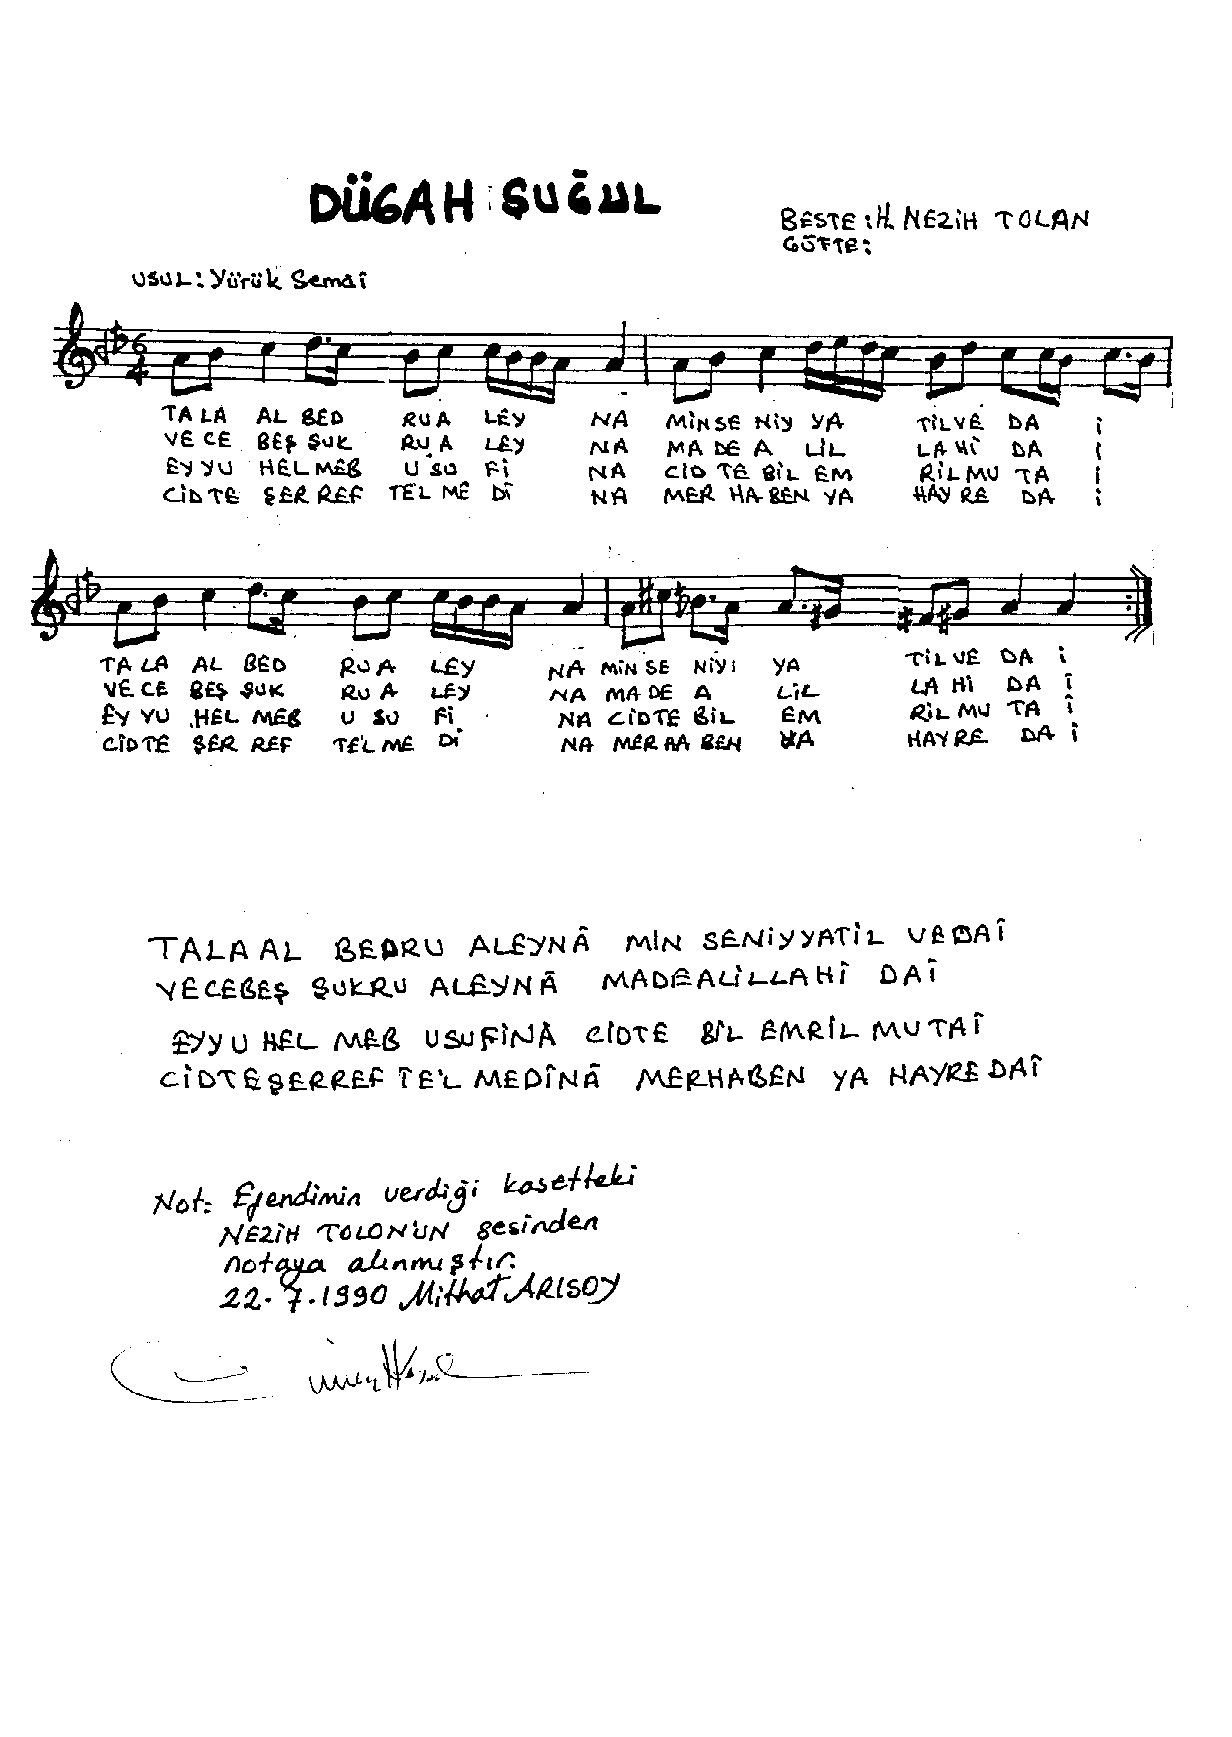 DÜGAH ŞUĞUL
BESTE: H. NEZİH TOLAN
GÜFTE:
USUL: Yürük Semaî
6
4
TA LA AL BED RU A LEY NA MİN SE NİY YA TİL VE DA İ
VE CE BEŞ ŞUK RU A LEY NA MA DE A LİL LA Hİ DA İ
EY YU HEL MEB U SU Fİ NA CİD TE BİL EM RİL MU TA İ
CİD TE ŞER REF TE'L ME Dİ NA MER HA BEN YA HAY RE DA İ
TA LA AL BED RU A LEY NA MİN SE NİYİ YA TİL VE DA İ
VE CE BEŞ ŞUK RU A LEY NA MA DE A LİL LA Hİ DA İ
EY YU HEL MEB U SU Fİ NA CİD TE BİL EM RİL MU TA İ
CİD TE ŞER REF TE'L ME Dİ NA MER HA BEN YA HAY RE DA İ
TALA AL BEDRU ALEYNÂ MİN SENİYYATİL VEDAÎ
VECEBEŞ ŞUKRU ALEYNÂ MADEALİLLAHÎ DAÎ
EYYU HEL MEB USUFİNÂ CİDTE BİL EMRİL MUTAÎ
CİDTE ŞERREF TE'L MEDÎNÂ MERHABEN YA HAYRE DAÎ
Not: Efendimin verdiği kasetteki
NEZİH TOLON'UN sesinden
notaya alınmıştır.
22.7.1990 Mithat ARISOY